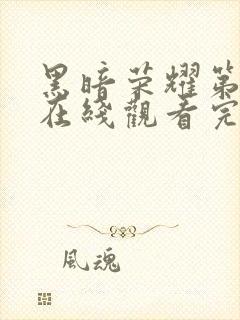 黑暗荣耀第
在线觀看完
風魂